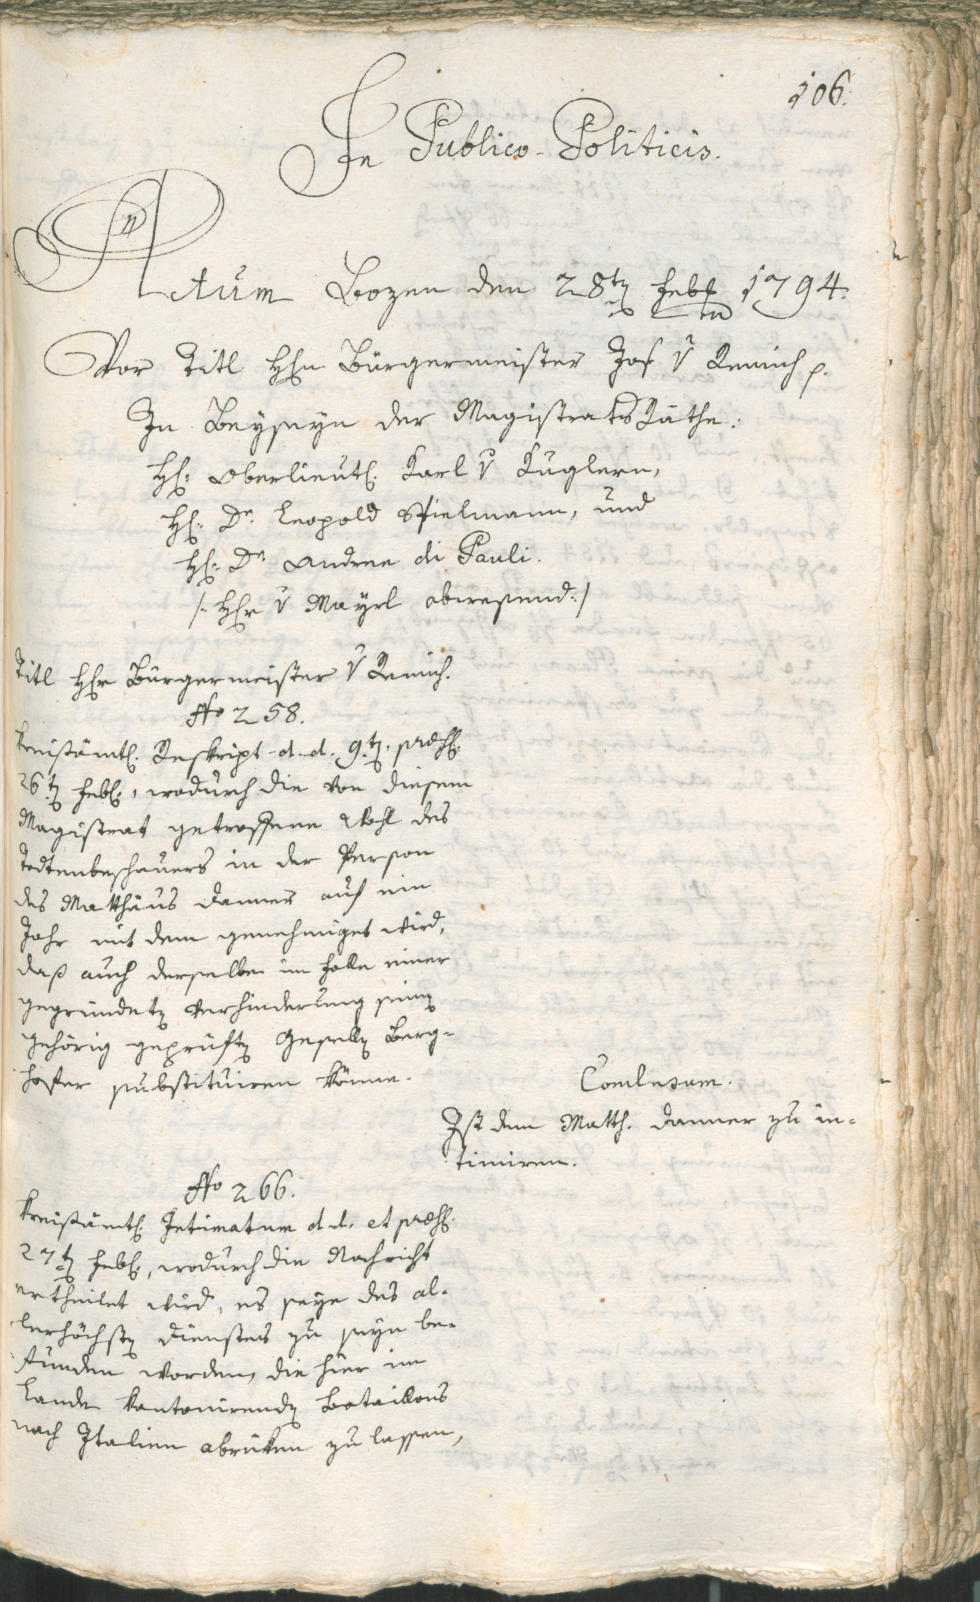 106.
In Publico-Politicis.
Actum Bozen den 28tn Febr 1794.
Vor Titl Hhn Bürgermeister Jos. v Remich p.
In Beyseyn der Magistrats Räthe:
Hh: Oberlieutl. Karl v Kuglern,
Hh: Dr. Leopold Spielmann, und
Hh: Dr. Andree di Pauli.
/: Hhr v Mayrl abwesend :/
Titl Hhr Bürgermeister v Remich.
No 258.
Kreisämtl. Reskript d. d. 9tn, praes.
26tn Febl., wodurch die von diesem
Magistrat getroffene Wahl des
Todtenbeschauers in der Person
des Matthäus Danner auf ein
Jahr mit dem genehmiget wird,
daß auch derselbe im Falle einer
gegründetn Verhinderung seinn
gehörig geprüftn Geselln Berg-
hofer substituiren könne.
Conclusum.
Ist dem Matth. Danner zu in-
timiren.
No 266.
Kreisämtl. Intimatum d. d. et praes.
27tn Febl., wodurch die Nachricht
ertheilet wird, es seye des al-
lerhöchstn Dienstes zu seyn be-
funden worden, die hier im
Lande kantonirendn Bataillons
nach Italien abrüken zu lassen,